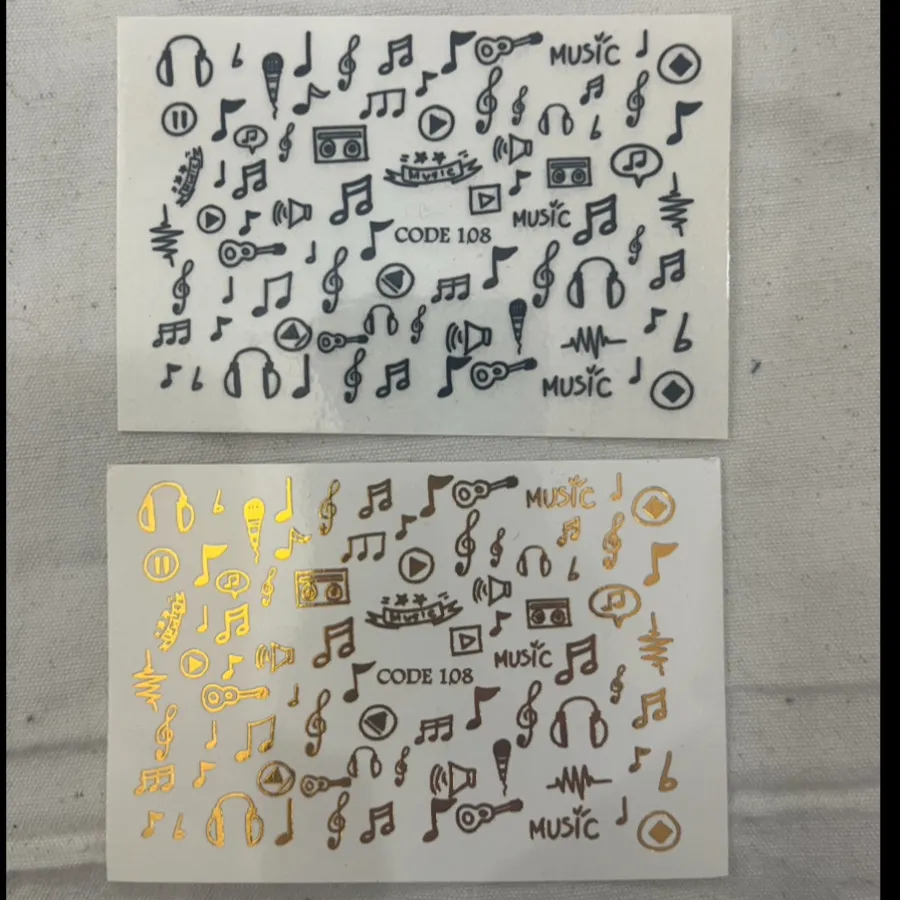 MUSIC
Music
Music
MUSIC
CODE 108
MUSIC
MUSIC
Music
Music
MUSIC
CODE 108
MUSIC